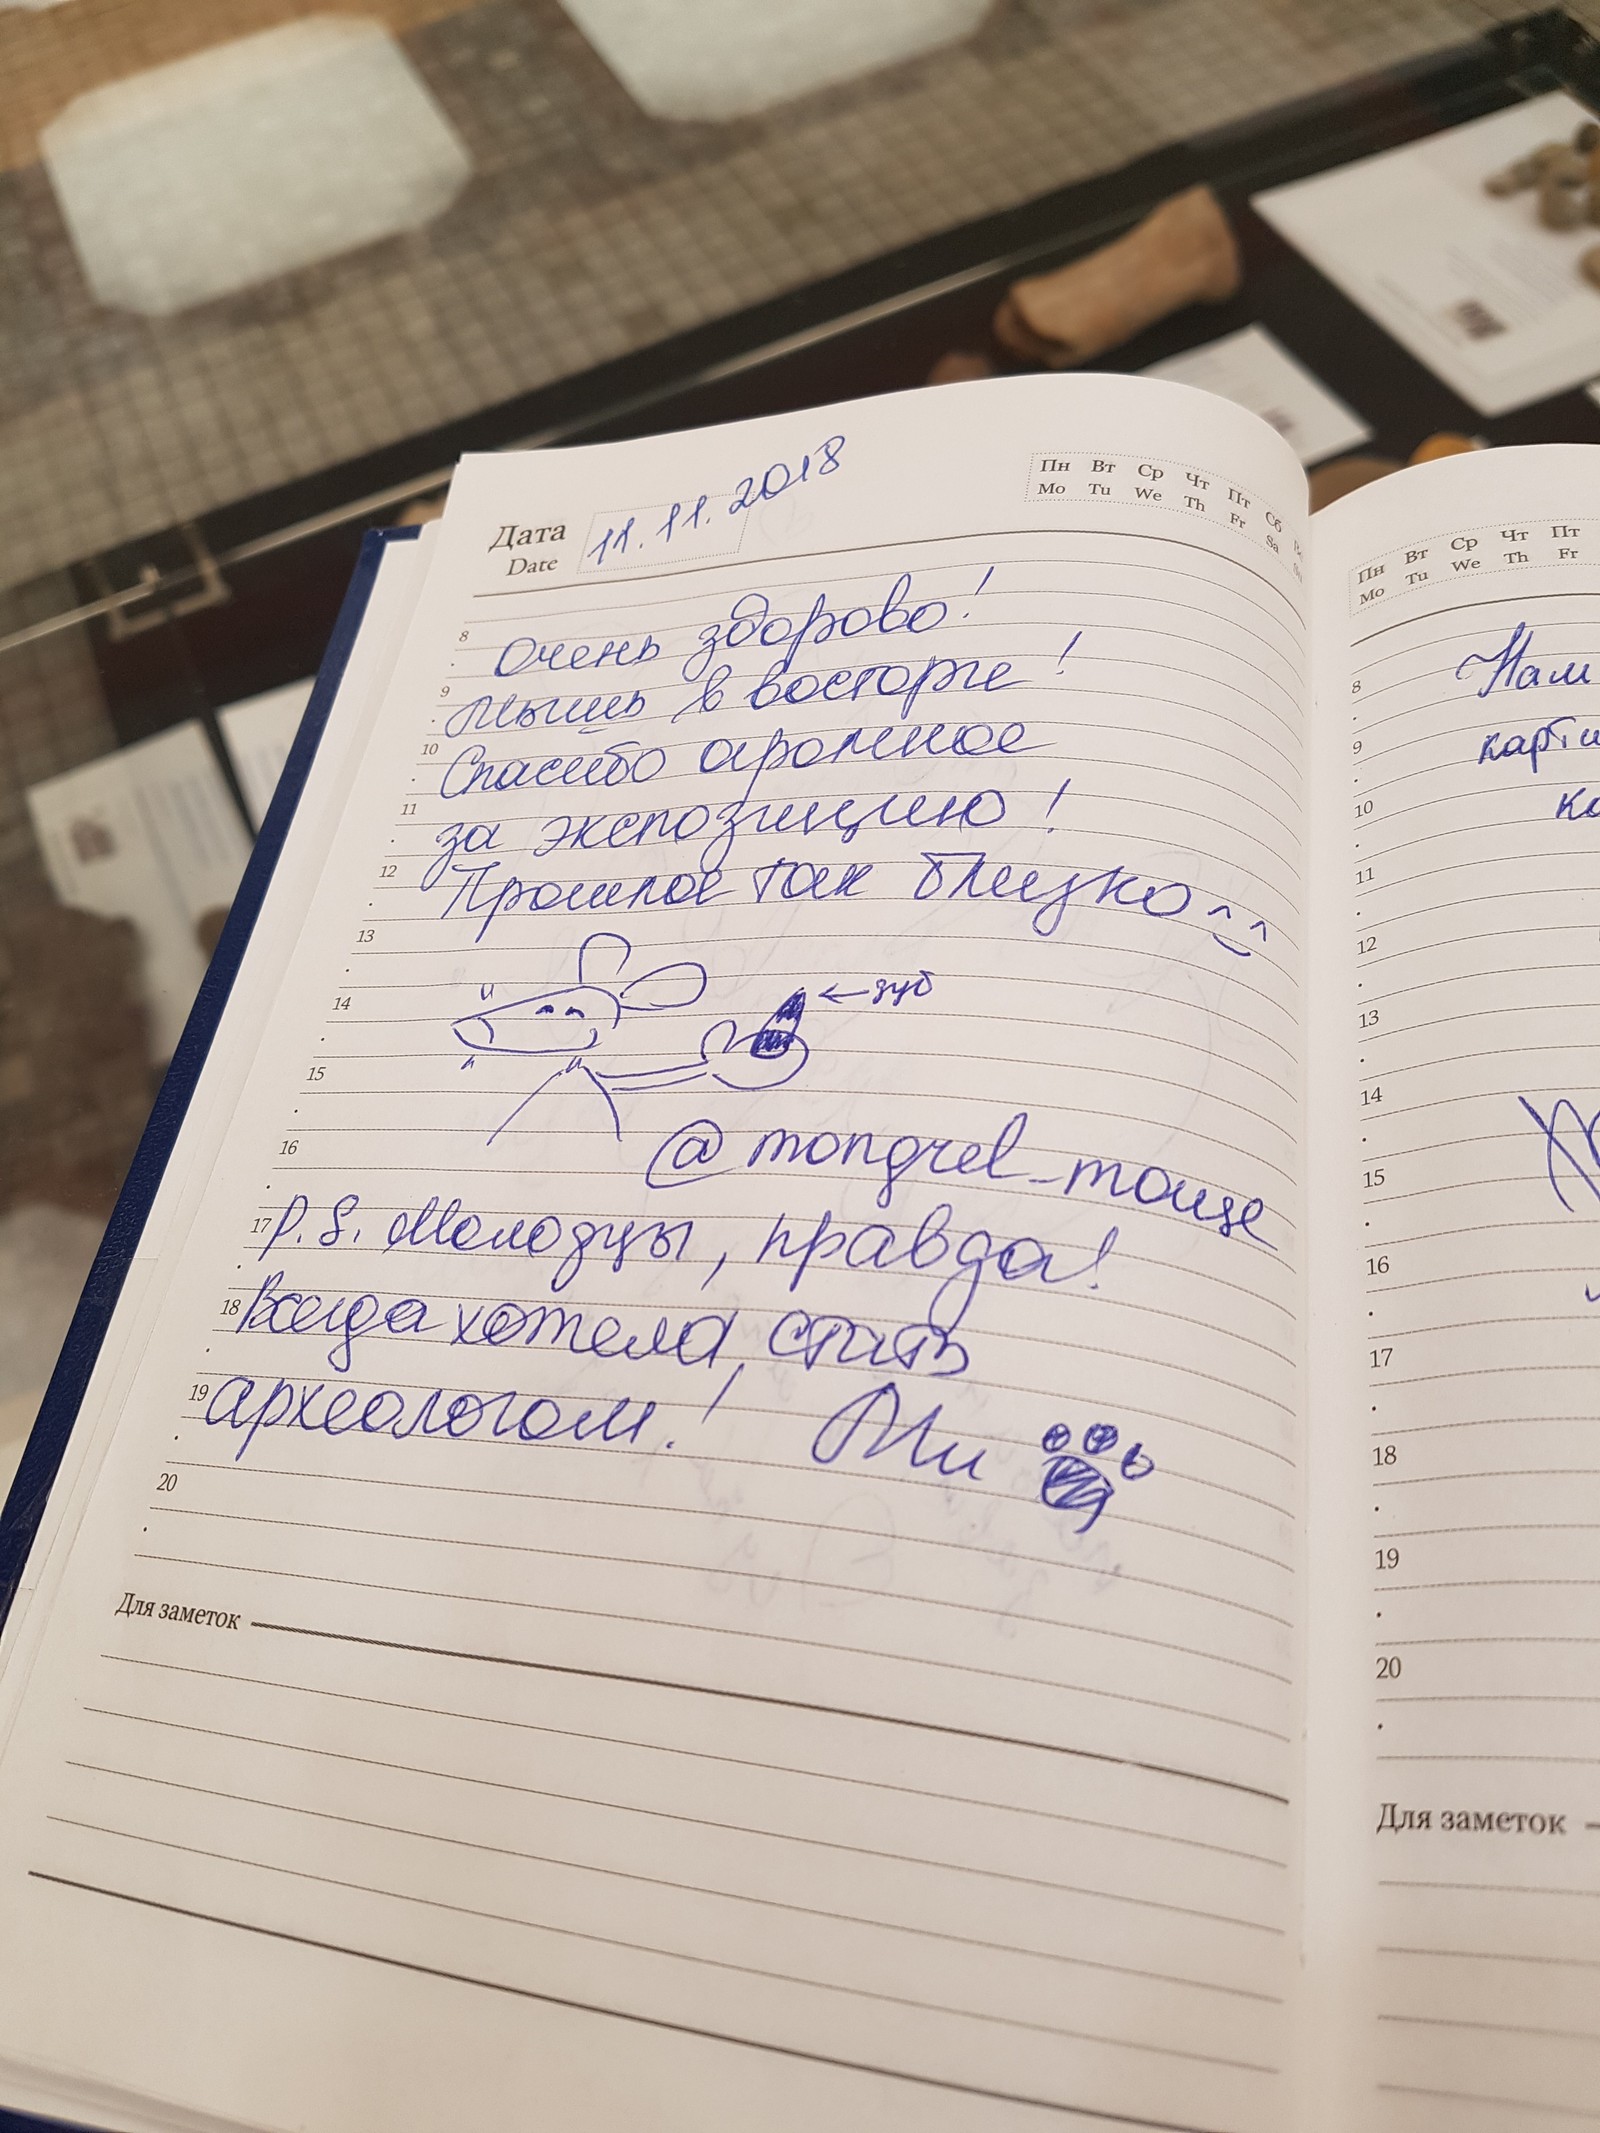 Дата 11.11.2018
Date
Пн Вт Ср Чт Пт Сб
Mo Tu We Th Fr Sa
8 Очень здорово!
9 Мышь в восторге!
10 Спасибо огромное
11 за экспозицию!
12 Прошлое так близко ^‿^
13
14 ←зуб
15
16 @mongrel_mouse
17 P.S. Молодцы, правда!
18 Всегда хотела стать
19 археологом! Ми
20
Для заметок
Пн Вт Ср Чт Пт
Mo Tu We Th Fr
8 Нам
9
10
11
12
13
14
15
16
17
18
19
20
Для заметок